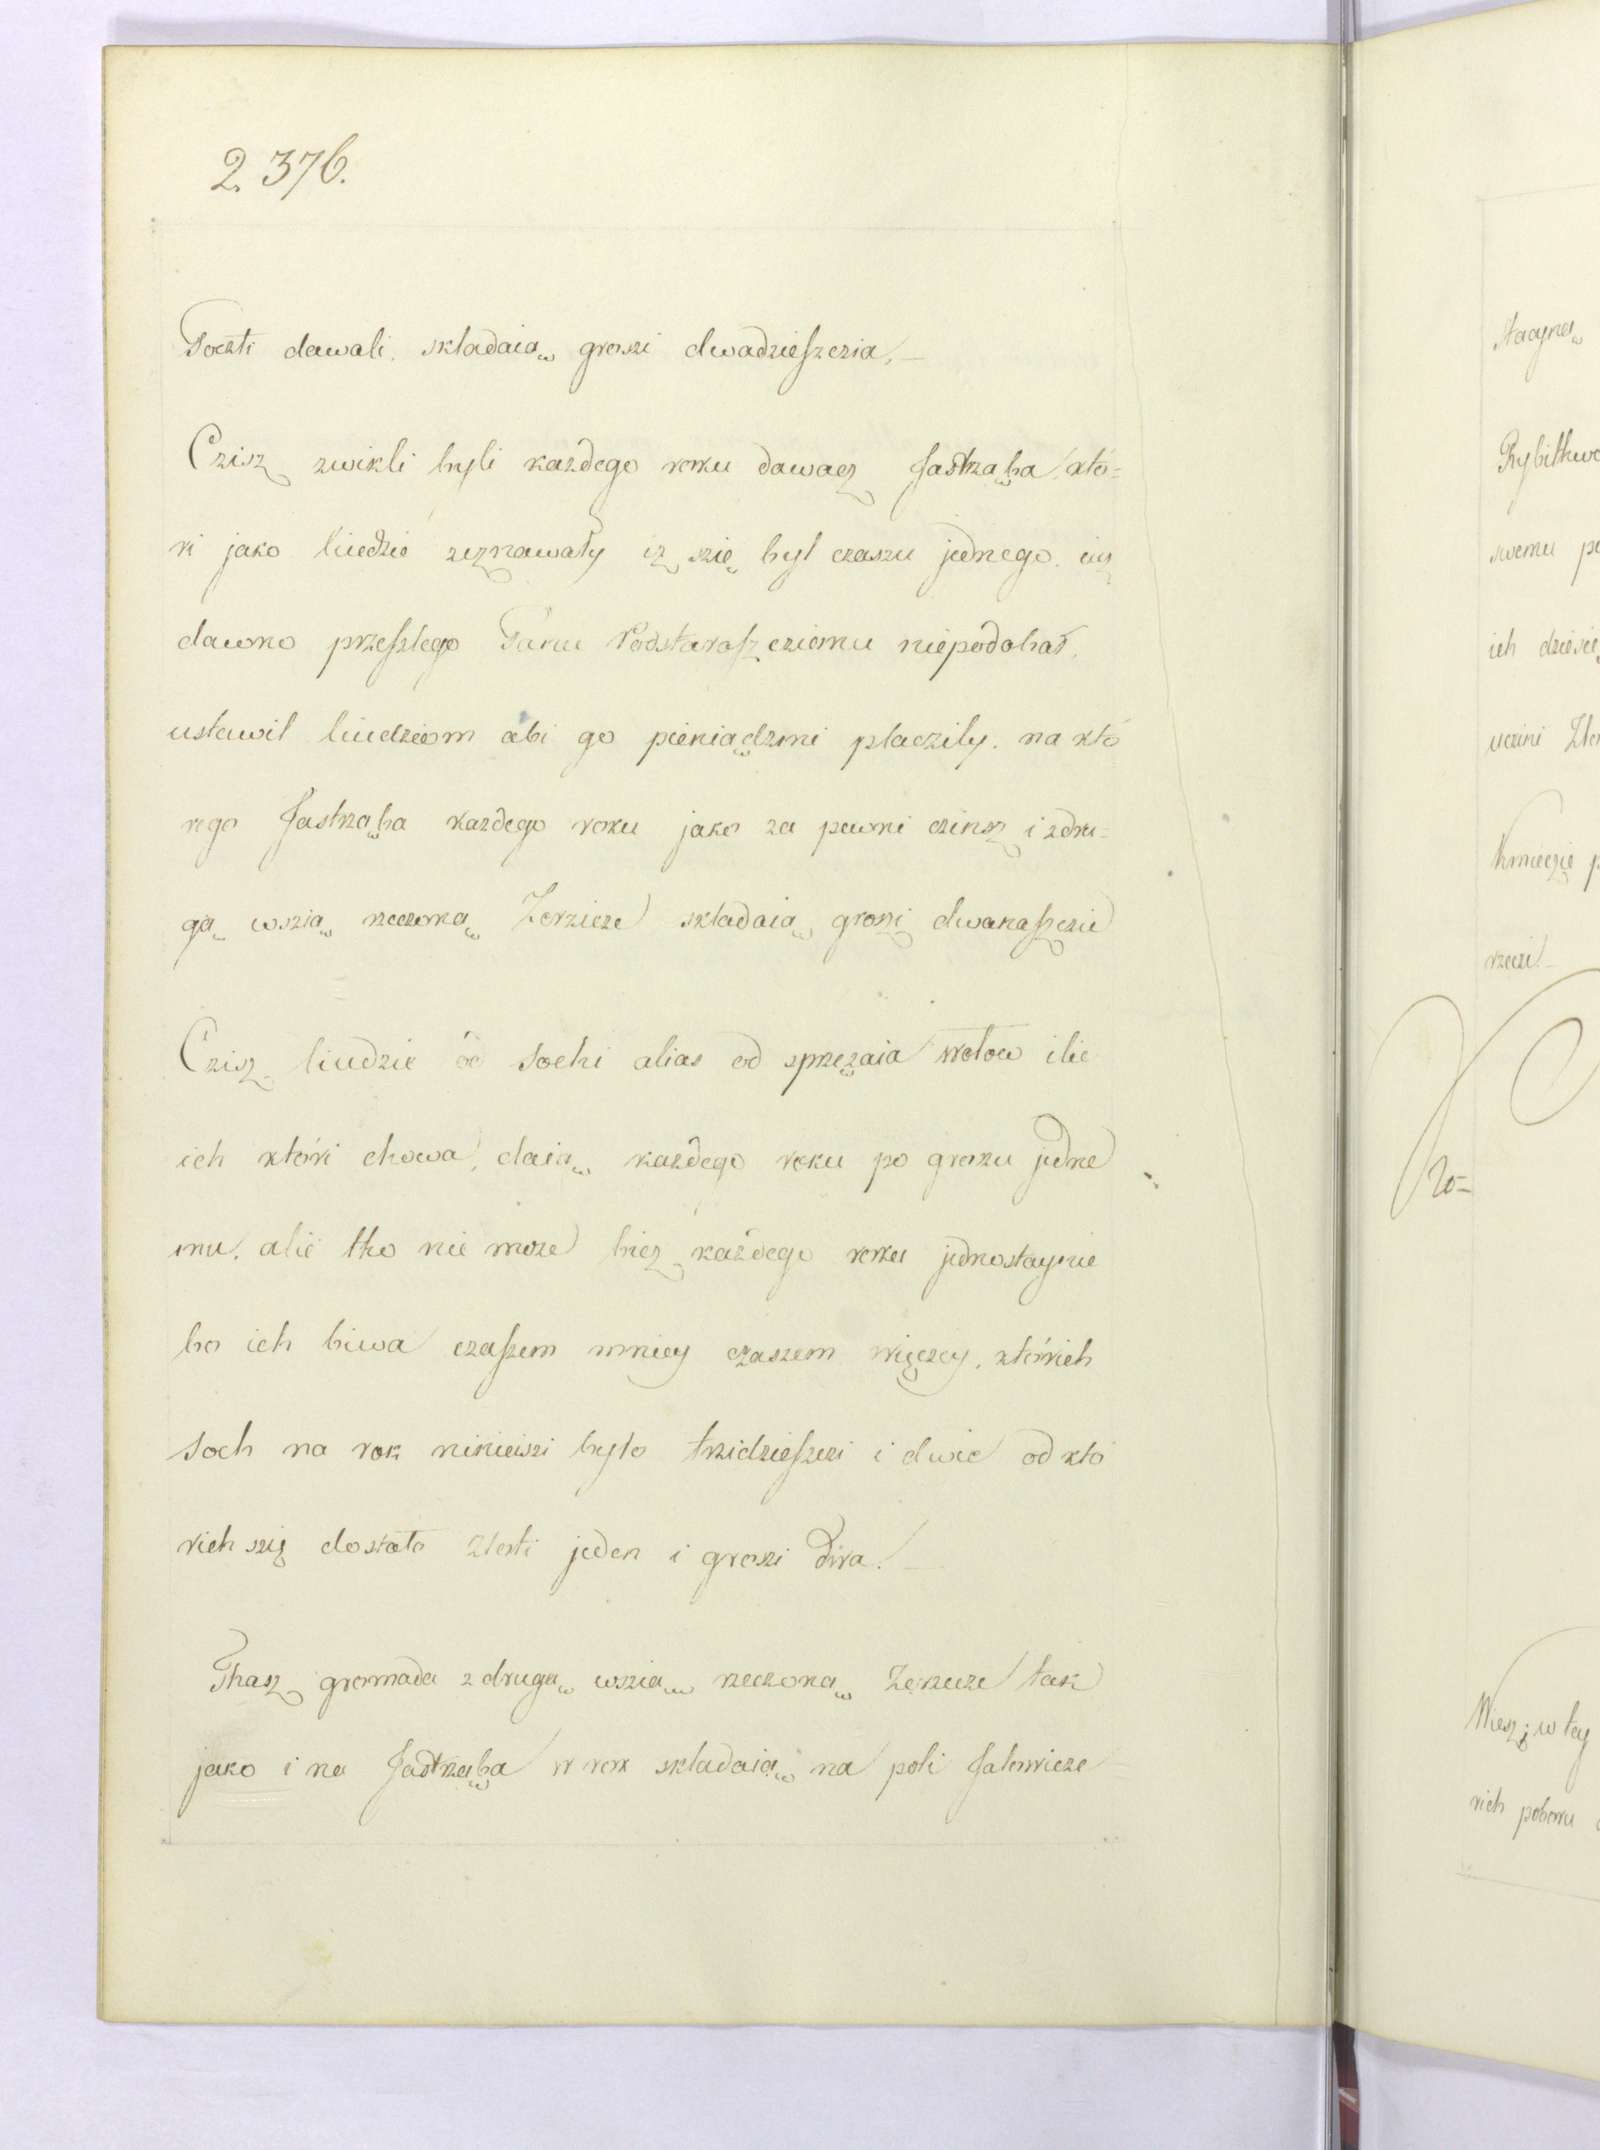 2. 376.
Poczti dawali, składaią groszi dwadzieſzczia, —
Czisz zwikli byli każdego roku dawacz Jastrząba, któ=
ri jako liudzie zeznawały iz szię był czaszu jednego, iusz
dawno przeſzłego Panu Podstaraſzcziemu niepodobał,
ustawił liudziom abi go pieniądzmi płaczily, na któ
rego Jastrząba każdego roku jako za pewni czinsz i zdru=
gą wszią rzeczoną Zerzicze składaią groszi dwanaſzczie
Czisz liudzie od sochi alias od sprzężaia wołow ilie
ich któri chowa, daią każdego roku po groszu jedne
mu, alie tho nie może bicz każdego roku jednostaynie
bo ich biwa czaſzem mniey czaszem więczey, którich
soch na rok ninieiszi było trzidzieſzczi i dwie od któ
rich szię dostało złoti jeden i groszi dwa. —
Thasz gromada z drugą wszią rzeczoną Zerzicze tak
jako i na Jastrząba w rok składaią na poli Jałowicze
Stacyną
Rybitkwo
swemu
ich dziesię
uczini
Kmieczie
rzeczi. —
Wiesz w tey
rich poboru